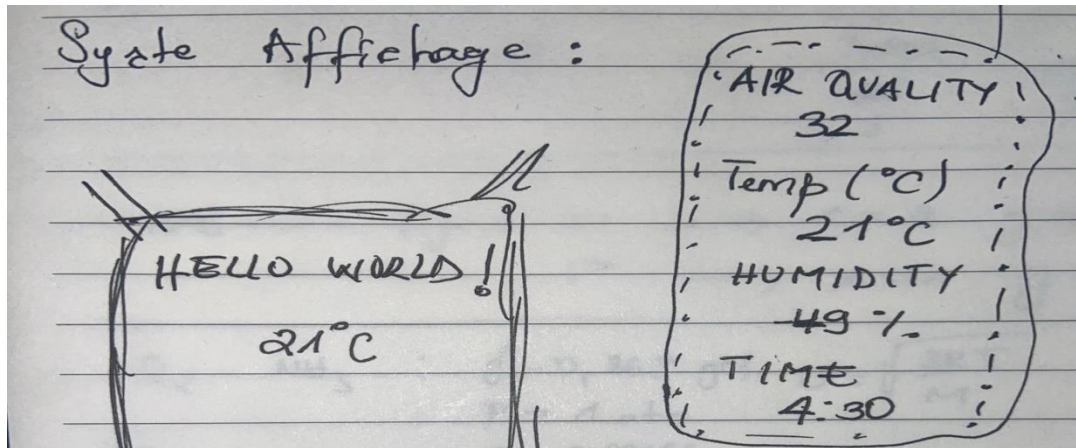 Syste Affichage :
HELLO WORLD!
21°C
AIR QUALITY
32
Temp (°C)
21°C
HUMIDITY
49 %
TIME
4:30